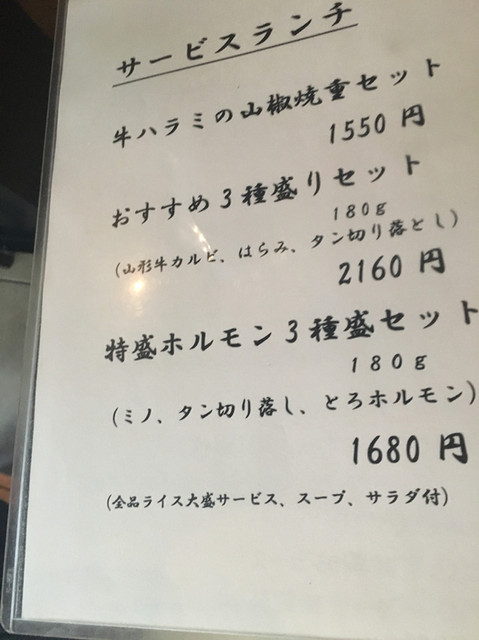 サービスランチ
牛ハラミの山椒焼重セット
1550 円
おすすめ３種盛りセット
１８０ｇ
(山形牛カルビ、はらみ、タン切り落とし)
2160 円
特盛ホルモン３種盛セット
１８０ｇ
(ミノ、タン切り落し、とろホルモン)
1680 円
(全品ライス大盛サービス、スープ、サラダ付)